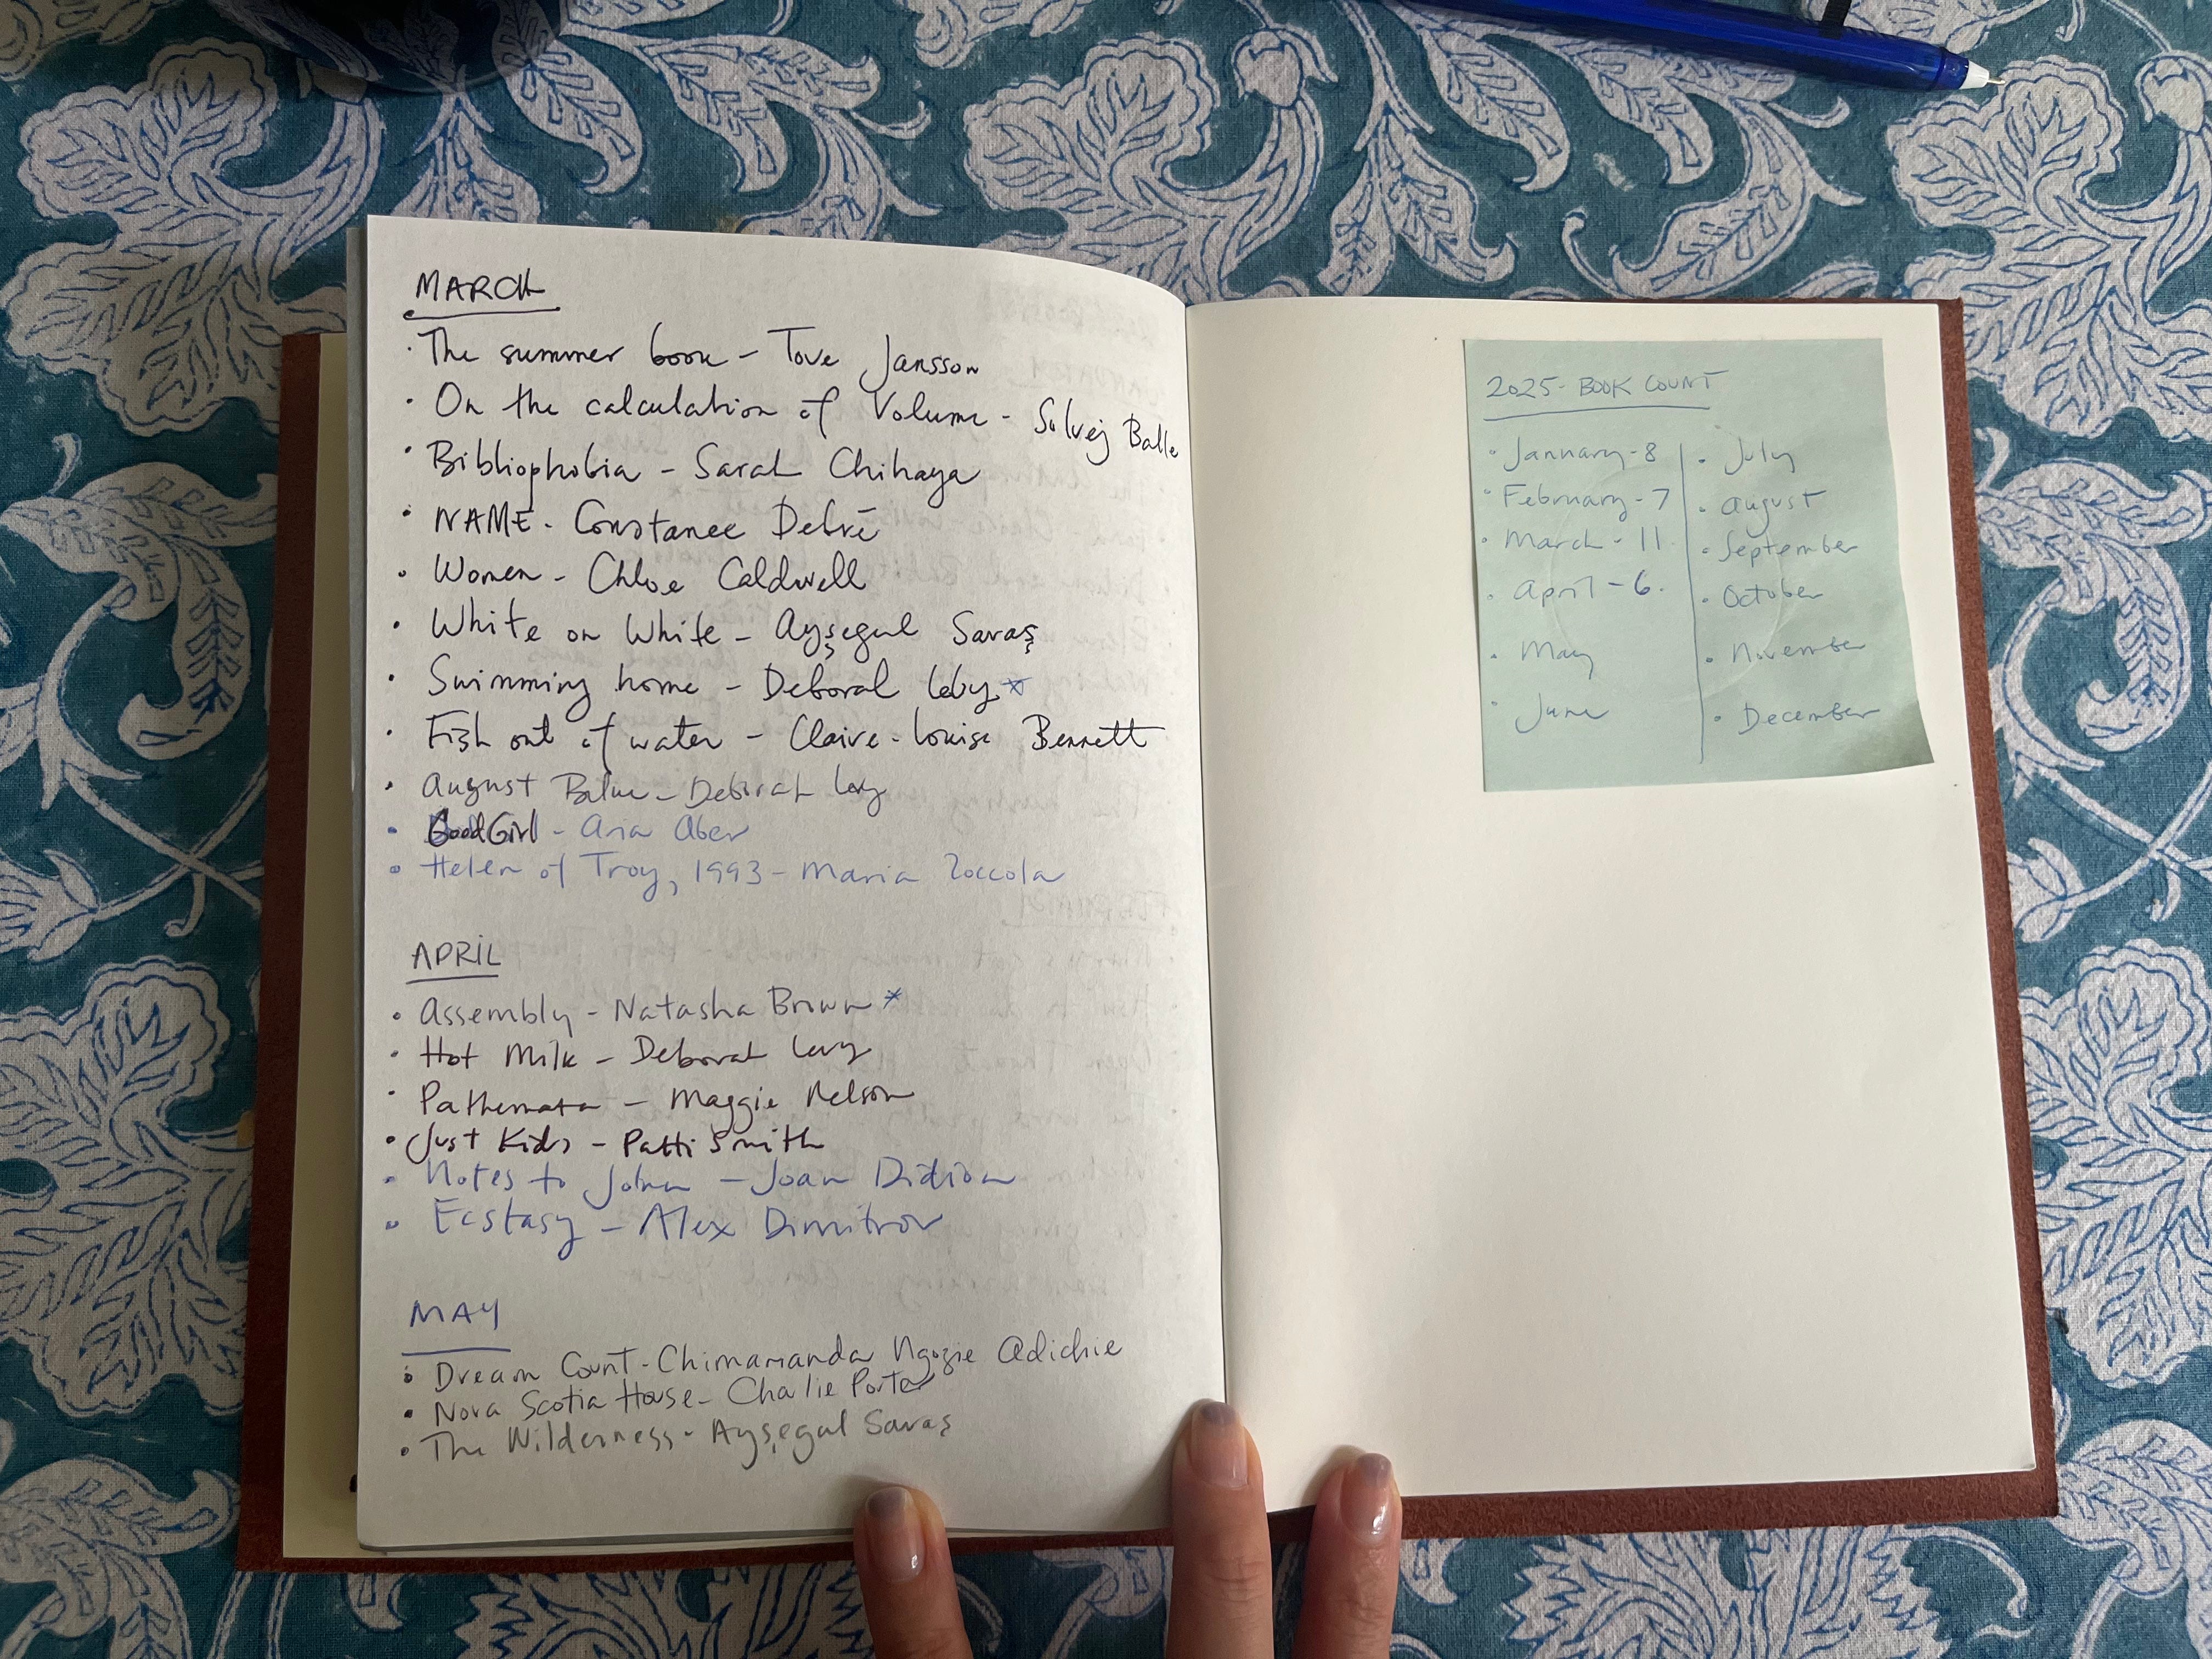 MARCH
· The summer book - Tove Jansson
· On the calculation of Volume - Solvej Balle
· Bibliophobia - Sarah Chihaya
· NAME - Constance Debré
· Women - Chloe Caldwell
· White on White - Ayşegul Savaş
· Swimming home - Deborah Levy *
· Fish out of water - Claire-Louise Bennett
· August Blue - Deborah Levy
· Good Girl - Aria Aber
· Helen of Troy, 1993 - Maria Zoccola
APRIL
· Assembly - Natasha Brown *
· Hot Milk - Deborah Levy
· Pathemata - Maggie Nelson
· Just Kids - Patti Smith
· Notes to John - Joan Didion
· Ecstasy - Alex Dimitrov
MAY
· Dream Count - Chimamanda Ngozie Adichie
· Nova Scotia House - Charlie Porter
· The Wilderness - Ayşegul Savaş
2025 - BOOK COUNT
· January - 8
· February - 7
· March - 11
· April - 6
· May
· June
· July
· August
· September
· October
· November
· December